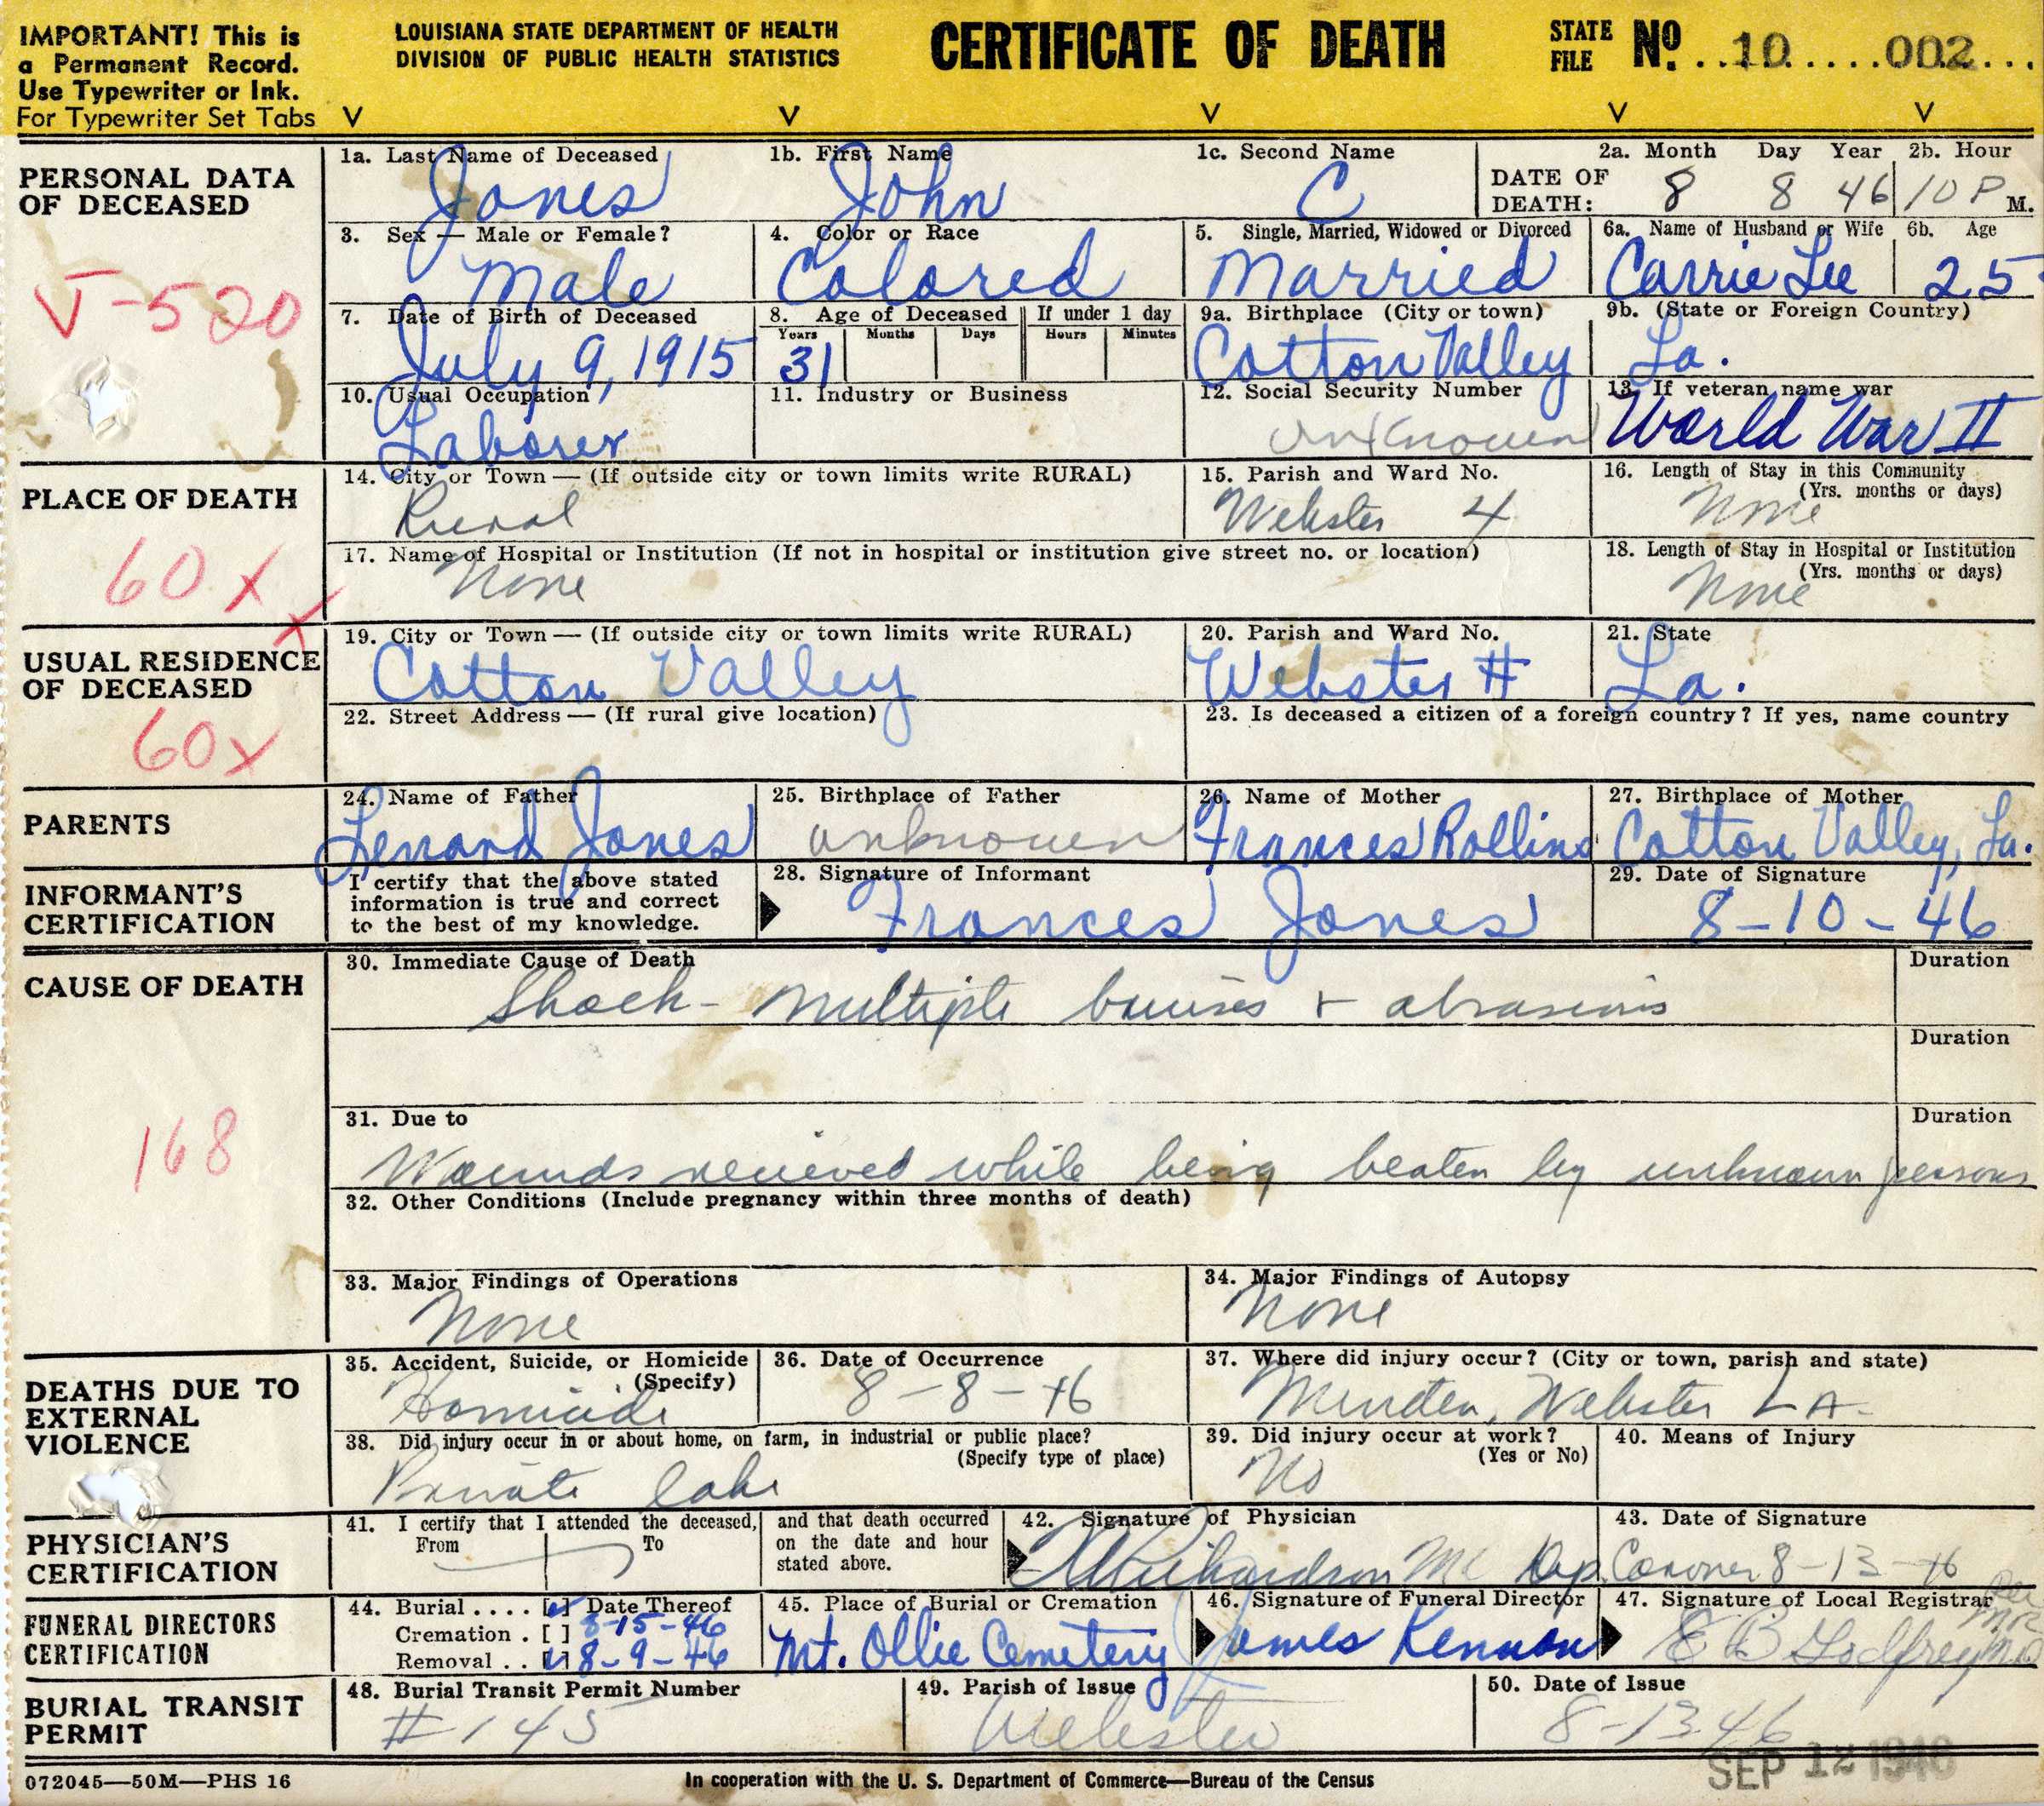 IMPORTANT! This is
a Permanent Record.
Use Typewriter or Ink.
For Typewriter Set Tabs V V V V V
LOUISIANA STATE DEPARTMENT OF HEALTH
DIVISION OF PUBLIC HEALTH STATISTICS
CERTIFICATE OF DEATH
STATE FILE No. 10 002
PERSONAL DATA
OF DECEASED
V-520
1a. Last Name of Deceased 1b. First Name 1c. Second Name 2a. Month Day Year 2b. Hour
Jones John C DATE OF DEATH: 8 8 46 10 P M.
3. Sex — Male or Female? 4. Color or Race 5. Single, Married, Widowed or Divorced 6a. Name of Husband or Wife 6b. Age
Male Colored Married Carrie Lee 25
7. Date of Birth of Deceased 8. Age of Deceased If under 1 day 9a. Birthplace (City or town) 9b. (State or Foreign Country)
Years Months Days Hours Minutes
July 9, 1915 31 Cotton Valley La.
10. Usual Occupation 11. Industry or Business 12. Social Security Number 13. If veteran name war
Laborer unknown World War II
PLACE OF DEATH
60 x
x
14. City or Town — (If outside city or town limits write RURAL) 15. Parish and Ward No. 16. Length of Stay in this Community
(Yrs. months or days)
Rural Webster 4 None
17. Name of Hospital or Institution (If not in hospital or institution give street no. or location) 18. Length of Stay in Hospital or Institution
(Yrs. months or days)
None None
USUAL RESIDENCE
OF DECEASED
60x
19. City or Town — (If outside city or town limits write RURAL) 20. Parish and Ward No. 21. State
Cotton Valley Webster # La.
22. Street Address — (If rural give location) 23. Is deceased a citizen of a foreign country? If yes, name country
PARENTS
24. Name of Father 25. Birthplace of Father 26. Name of Mother 27. Birthplace of Mother
Lenard Jones unknown Frances Rollins Cotton Valley, La.
INFORMANT'S
CERTIFICATION
I certify that the above stated
information is true and correct
to the best of my knowledge.
28. Signature of Informant 29. Date of Signature
Frances Jones 8-10-46
CAUSE OF DEATH
168
30. Immediate Cause of Death Duration
Shock - Multiple bruises + abrasions
Duration
31. Due to Duration
Wounds recieved while being beaten by unknown persons
32. Other Conditions (Include pregnancy within three months of death)
33. Major Findings of Operations 34. Major Findings of Autopsy
None None
DEATHS DUE TO
EXTERNAL
VIOLENCE
35. Accident, Suicide, or Homicide
(Specify)
36. Date of Occurrence 37. Where did injury occur? (City or town, parish and state)
Homicide 8-8-46 Minden, Webster LA.
38. Did injury occur in or about home, on farm, in industrial or public place?
(Specify type of place)
39. Did injury occur at work?
(Yes or No)
40. Means of Injury
Private lake No
PHYSICIAN'S
CERTIFICATION
41. I certify that I attended the deceased,
From To
and that death occurred
on the date and hour
stated above.
42. Signature of Physician 43. Date of Signature
Richardson Dep. Coroner 8-13-46
FUNERAL DIRECTORS
CERTIFICATION
44. Burial .... [ ] Date Thereof
Cremation . [ ] 8-15-46
Removal .. [ ] 8-9-46
45. Place of Burial or Cremation 46. Signature of Funeral Director 47. Signature of Local Registrar
Mt. Ollie Cemetery James Kennon E B Godfrey
BURIAL TRANSIT
PERMIT
48. Burial Transit Permit Number 49. Parish of Issue 50. Date of Issue
# 145 Webster 8-13-46
SEP 12 1946
072045—50M—PHS 16
In cooperation with the U. S. Department of Commerce—Bureau of the Census